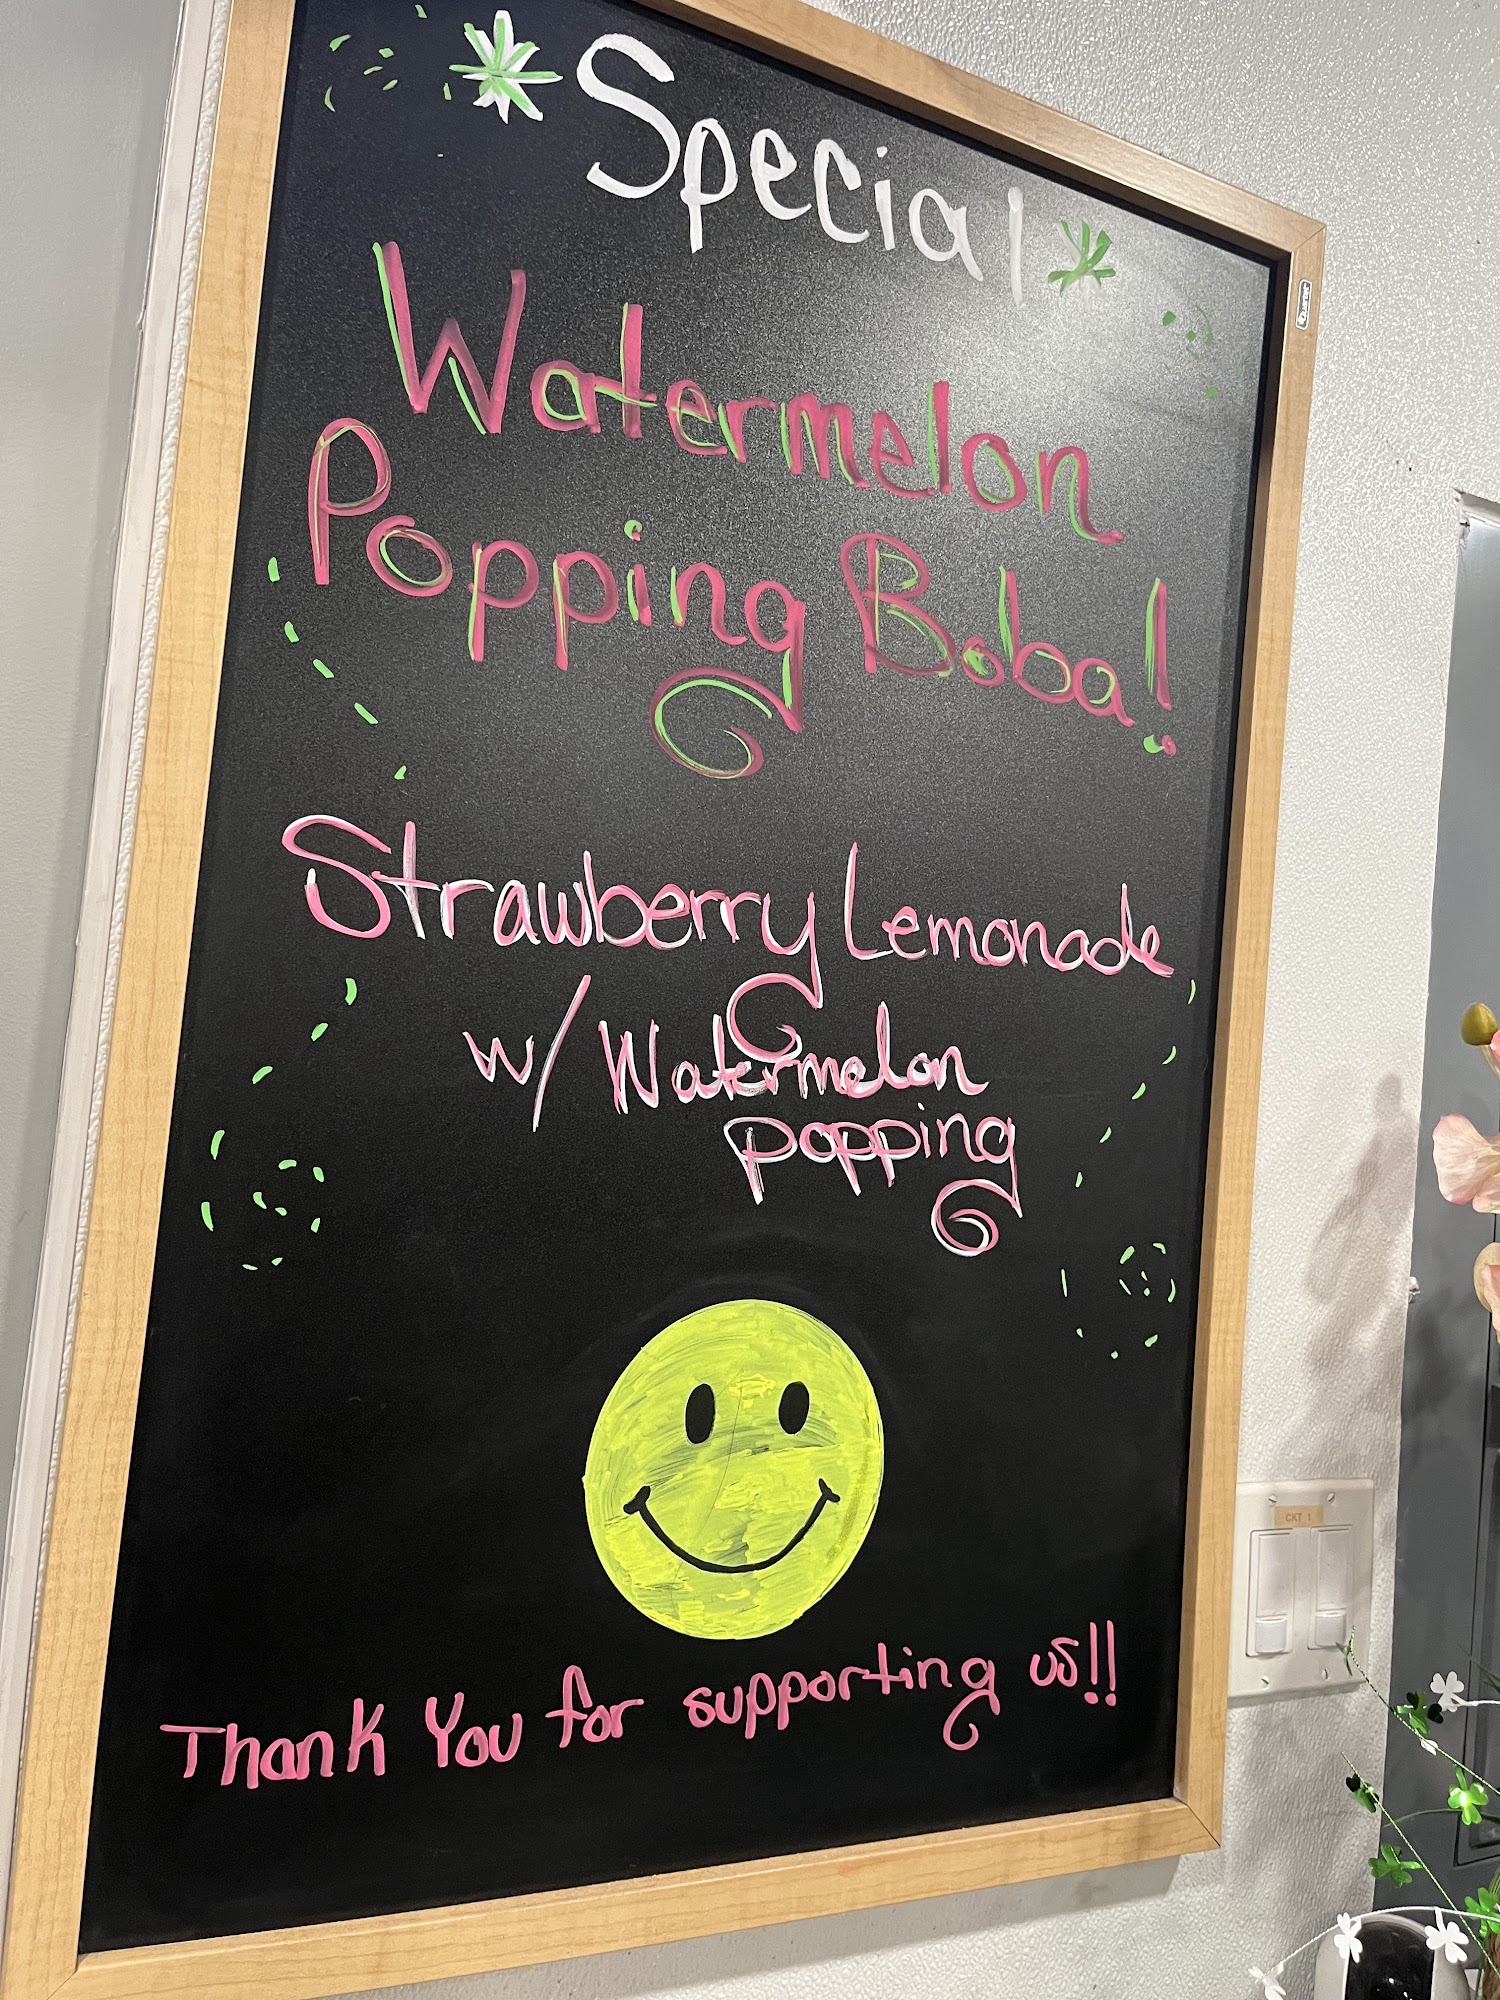 *Special*
Watermelon
Popping Boba!
Strawberry Lemonade
w/ Watermelon
popping
Thank You for supporting us!!
CKT 1